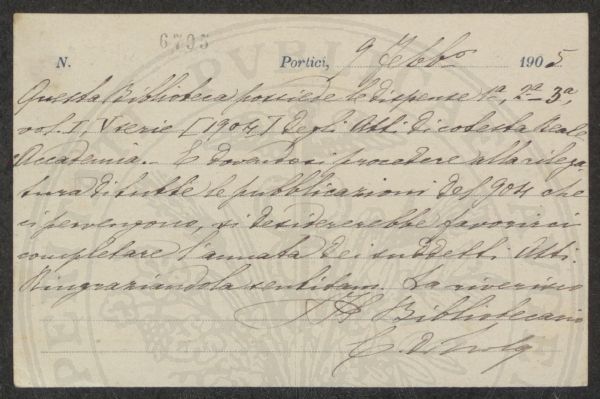 6795
N. Portici, 9 Febb.o 1905
Questa Biblioteca possiede le dispense 1a, 2a–3a,
vol. I, V serie [1904] degli Atti di cotesta Reale
Accademia.– E dovendosi procedere alla rilega-
tura di tutte le pubblicazioni del 904 che
ci pervengono, si desidererebbe favorirci
completare l'annata dei suddetti Atti.
Ringraziandola sentitam. La riverisco
Il Bibliotecario